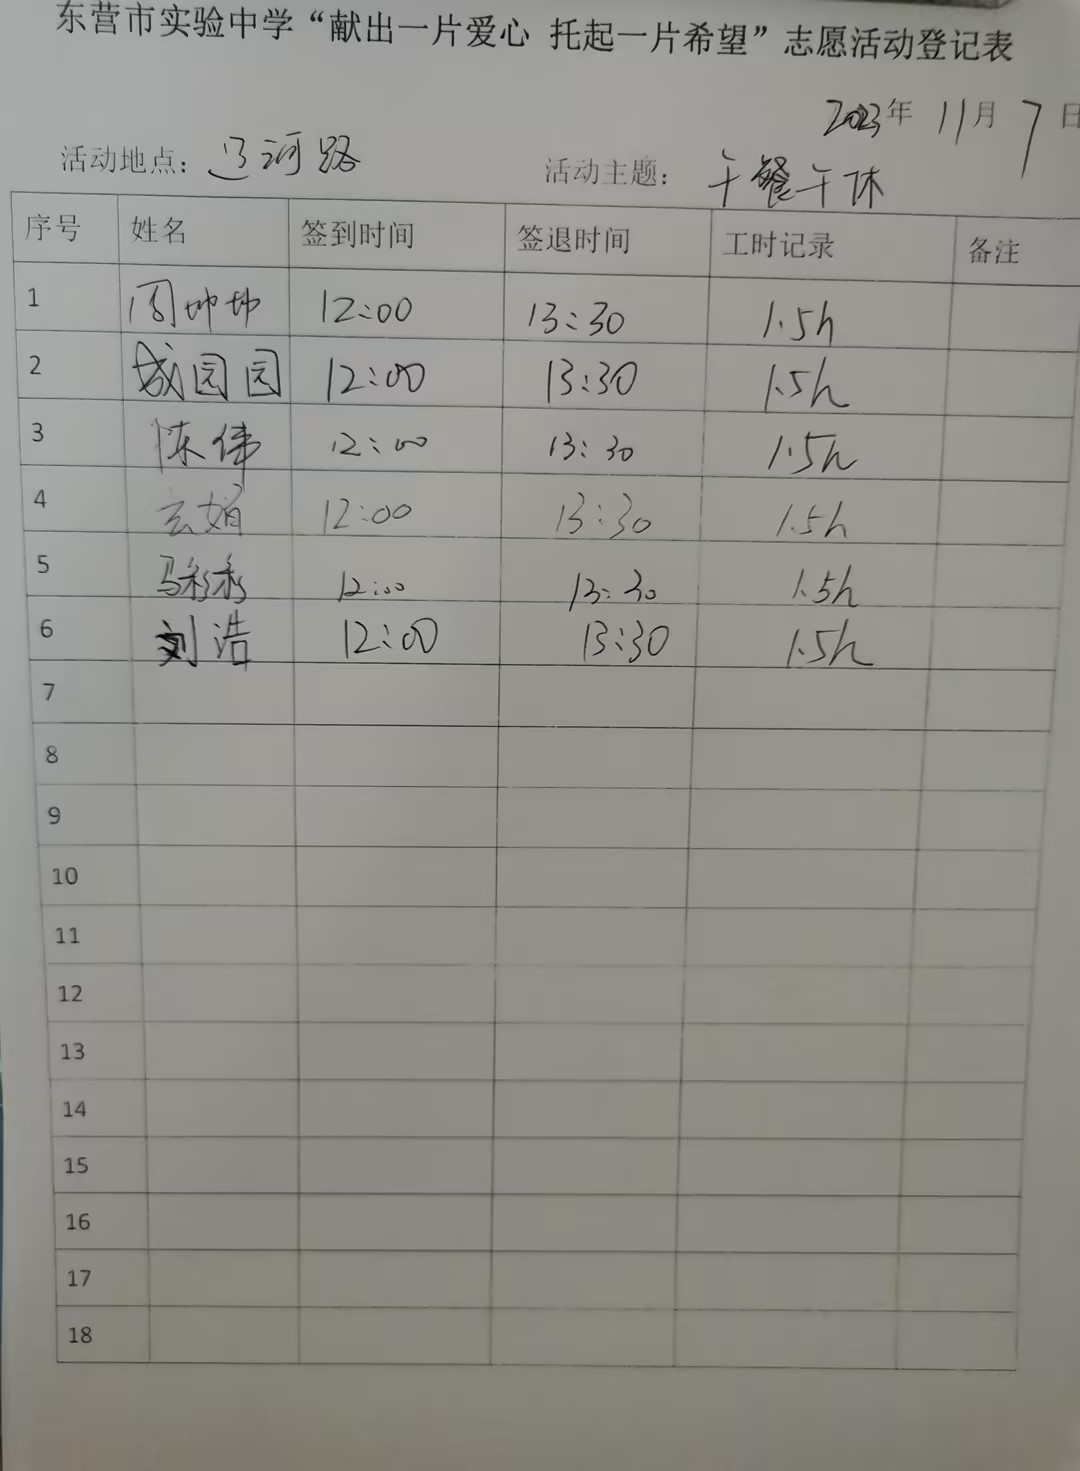 东营市实验中学“献出一片爱心 托起一片希望”志愿活动登记表
2023年 11月 7日
活动地点：辽河路 活动主题：午餐午休
序号 姓名 签到时间 签退时间 工时记录 备注
1 周坤坤 12:00 13:30 1.5h
2 成园园 12:00 13:30 1.5h
3 陈伟 12:00 13:30 1.5h
4 12:00 13:30 1.5h
5 马彩彩 12:00 13:30 1.5h
6 刘浩 12:00 13:30 1.5h
7
8
9
10
11
12
13
14
15
16
17
18